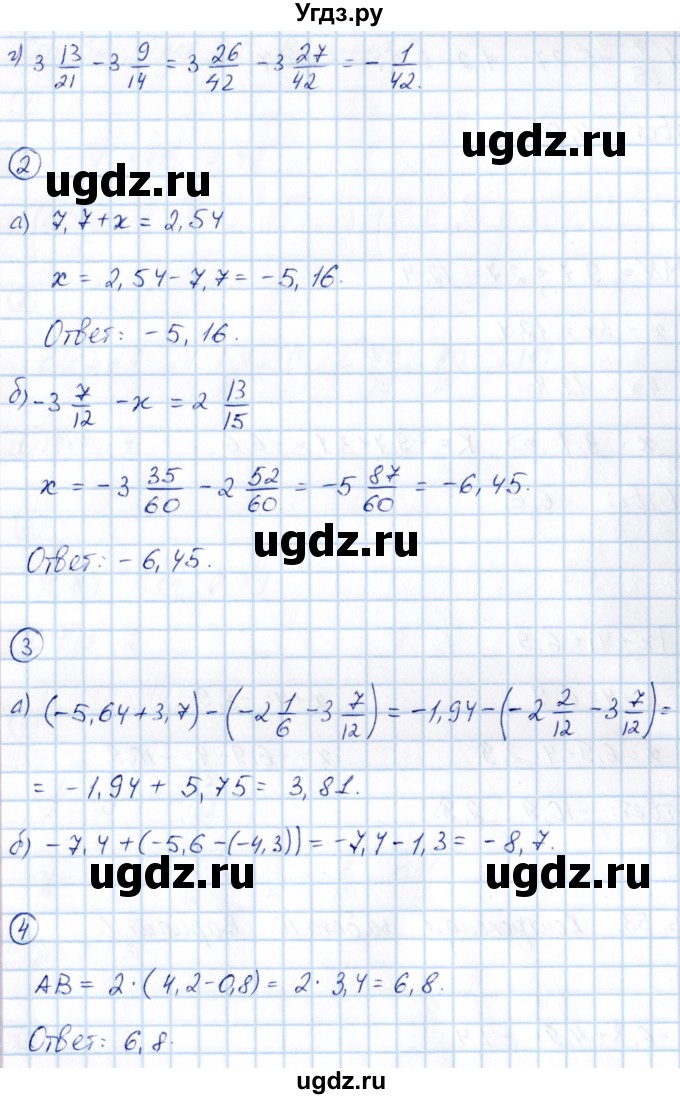 Угдз.ру
г) 3 13/21 - 3 9/14 = 3 26/42 - 3 27/42 = - 1/42.
ugdz.ru
2
ugdz.ru
а) 7,7 + x = 2,54
x = 2,54 - 7,7 = -5,16.
Ответ: -5,16.
б) -3 7/12 - x = 2 13/15
x = -3 35/60 - 2 52/60 = -5 87/60 = -6,45.
ugdz.ru
Ответ: -6,45.
3
а) (-5,64 + 3,7) - (-2 1/6 - 3 7/12) = -1,94 - (-2 2/12 - 3 7/12) =
= -1,94 + 5,75 = 3,81.
б) -7,4 + (-5,6 - (-4,3)) = -7,4 - 1,3 = -8,7.
ugdz.ru ugdz.ru
4
AB = 2·(4,2 - 0,8) = 2·3,4 = 6,8.
Ответ: 6,8.
ugdz.ru
ugdz.ru